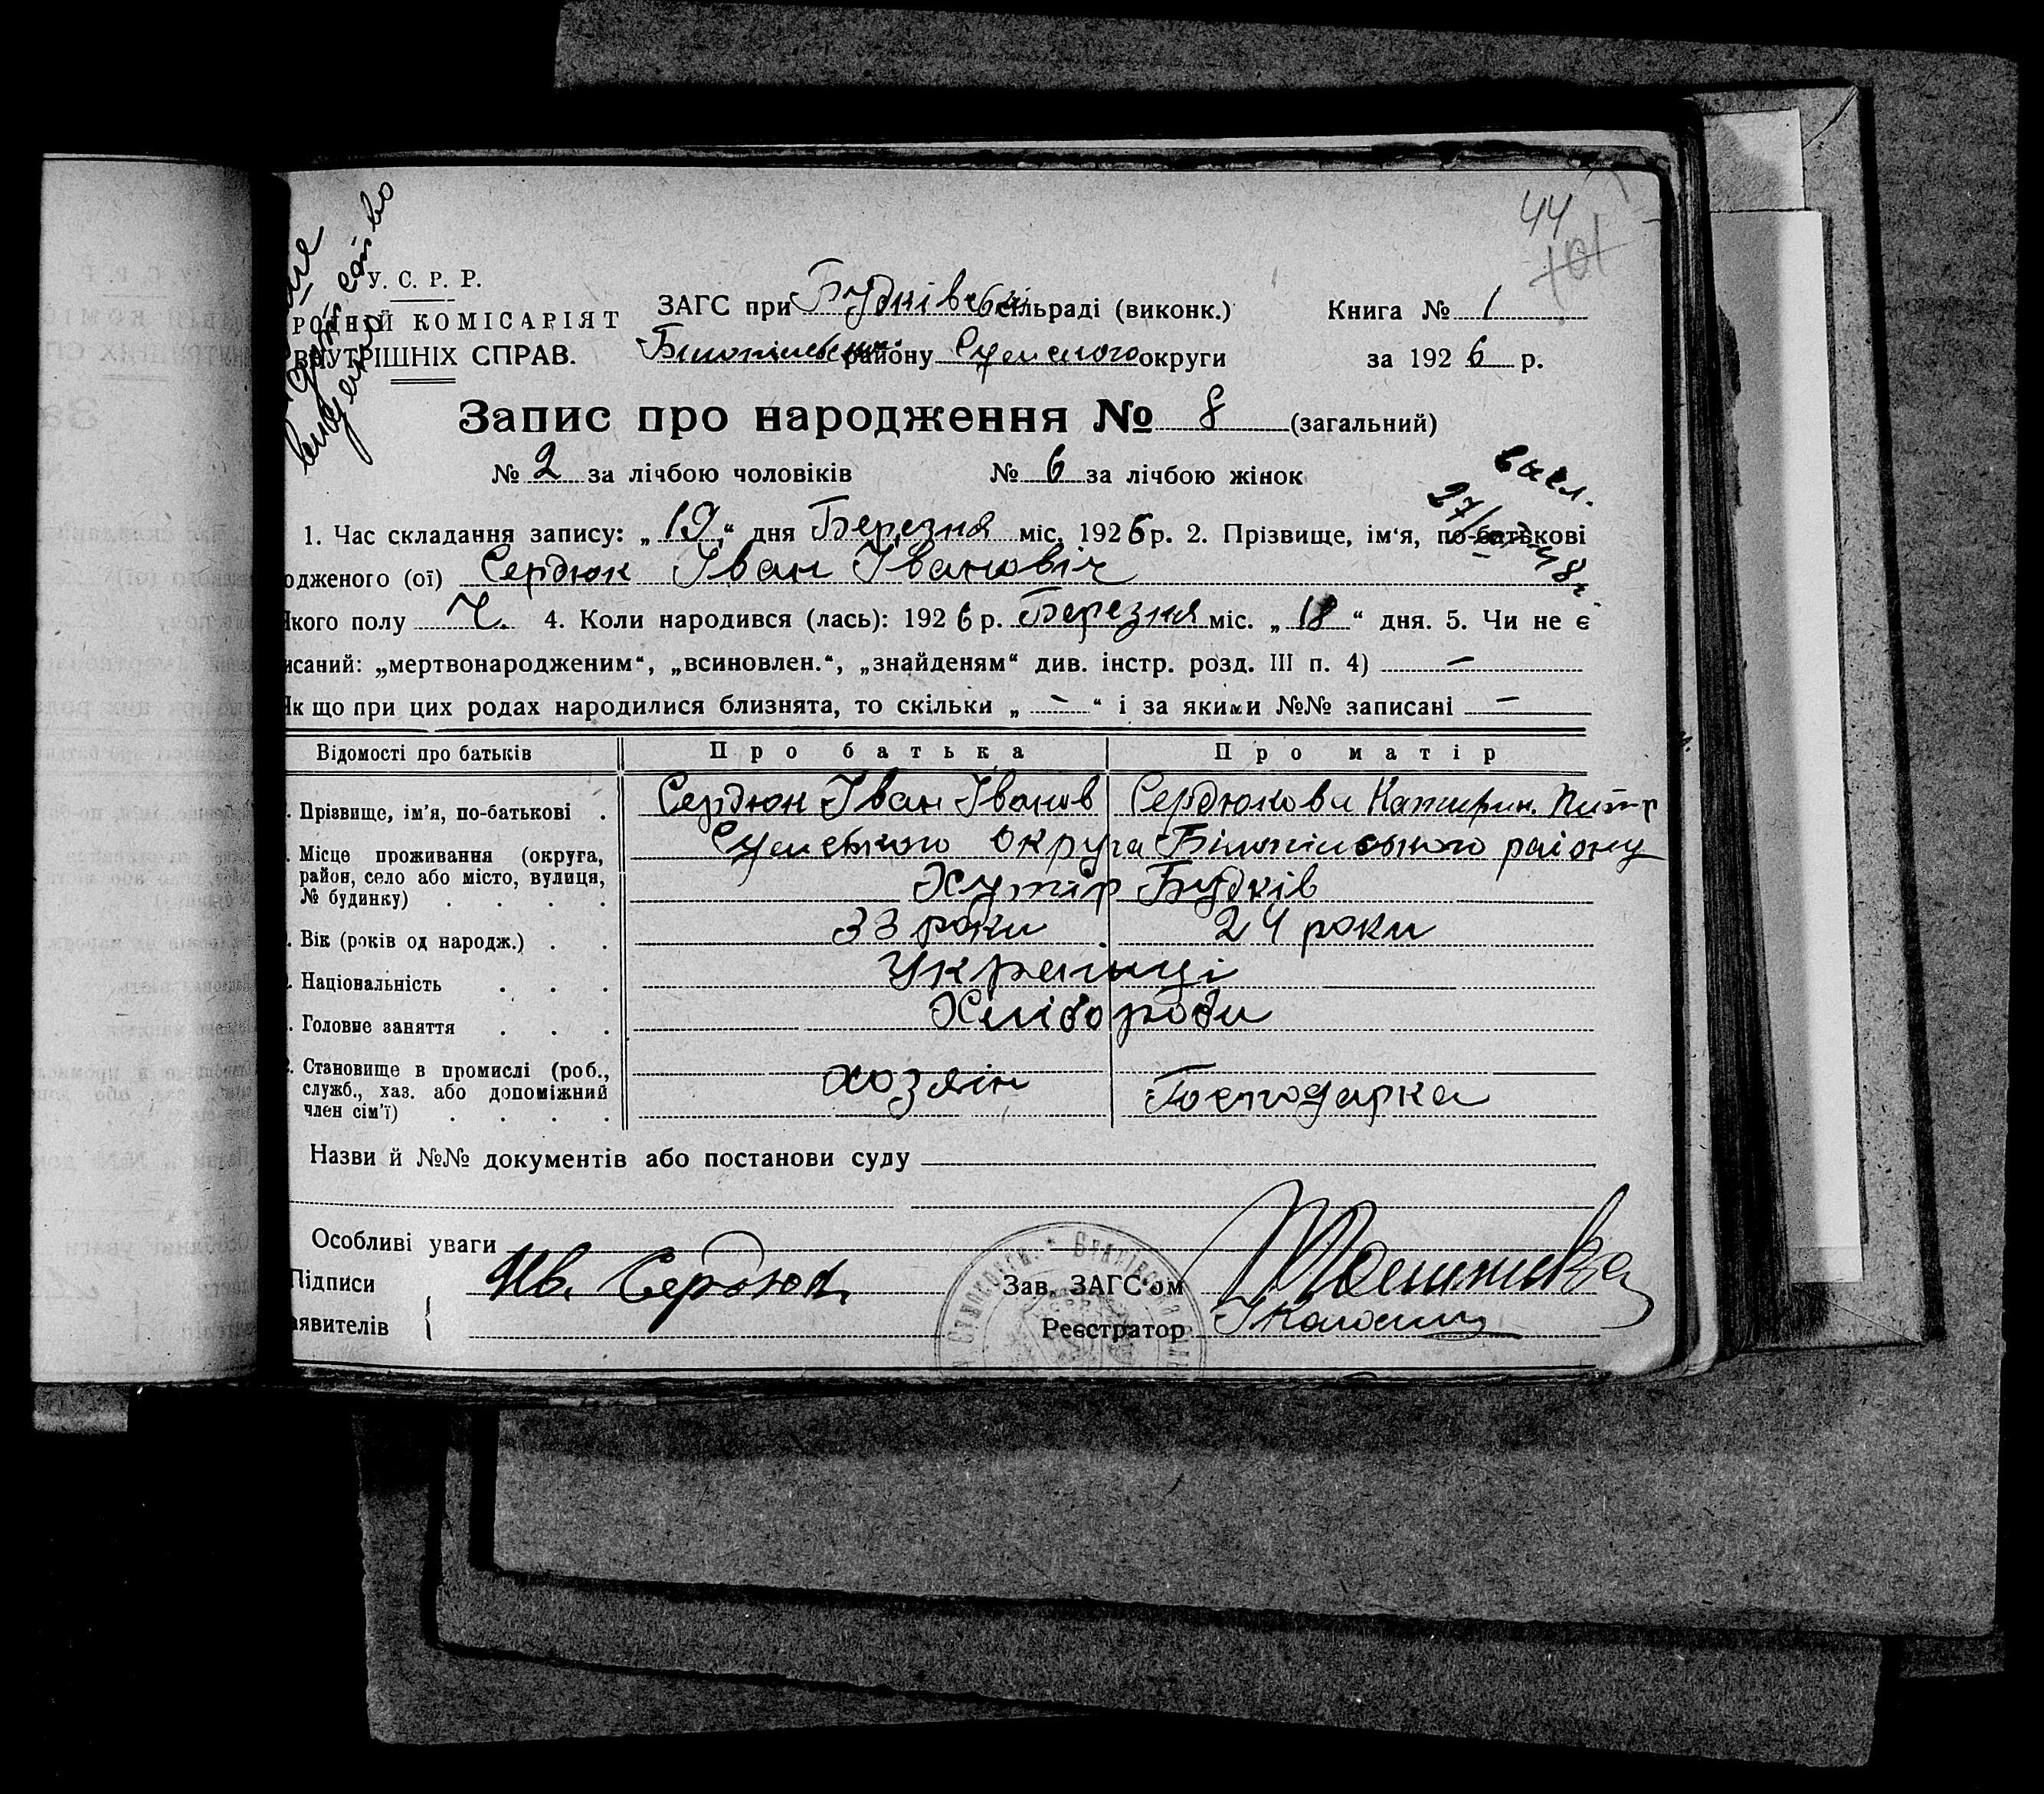 44
101
У. С. Р. Р.
РОДНІЙ КОМІСАРІЯТ
ВНУТРІШНІХ СПРАВ.
ЗАГС при Будківські сільраді (виконк.)
Білопільськ району Сумського округи
Книга № 1
за 1926 р.
Запис про народження № 8 (загальний)
№ 2 за лічбою чоловіків № 6 за лічбою жінок
1. Час складання запису: „19“ дня Березня міс. 1926 р. 2. Прізвище, ім'я, по-батькові
одженого (ої) Сердюк Іван Івановіч
Якого полу Ч. 4. Коли народився (лась): 1926 р. Березня міс. „18“ дня. 5. Чи не є
исаний: „мертвонародженим“, „всиновлен.“, „знайденям“ див. інстр. розд. III п. 4) —
Як що при цих родах народилися близнята, то скільки „—“ і за якими №№ записані —
Відомості про батьків Про батька Про матір
Прізвище, ім'я, по-батькові . Сердюк Іван Іванов Сердюкова Катерин. Петр
Місце проживання (округа, район, село або місто, вулиця, № будинку) . . . . Сумського округа Білопільського району
Хутір Будків
Вік (років од народж.) . . 33 роки 24 роки
Національність . . . Українці
Головне заняття . . . Хлібороби
Становище в промислі (роб., служб., хаз. або допоміжний член сім'ї) . . . . хозяін Господарка
Назви й №№ документів або постанови суду
Особливі уваги
Підписи
аявителів { Ив. Сердюк
Зав. ЗАГС'ом
Реєстратор